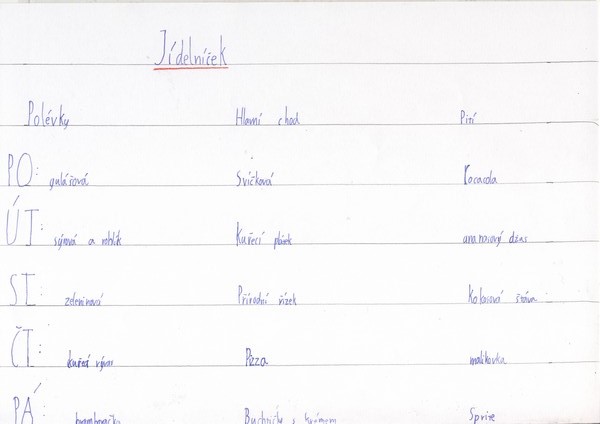 Jídelníček
Polévky Hlavní chod Pití
PO: gulášová Svíčková Kocacola
ÚT: sýrová a rohlík Kuřecí plátek ananasový džus
ST: zeleninová Přírodní řízek Kolasová šťáva
ČT: kuřecí vývar Pizza malikovka
PÁ bramboračka Buchtičky s krémem Sprite